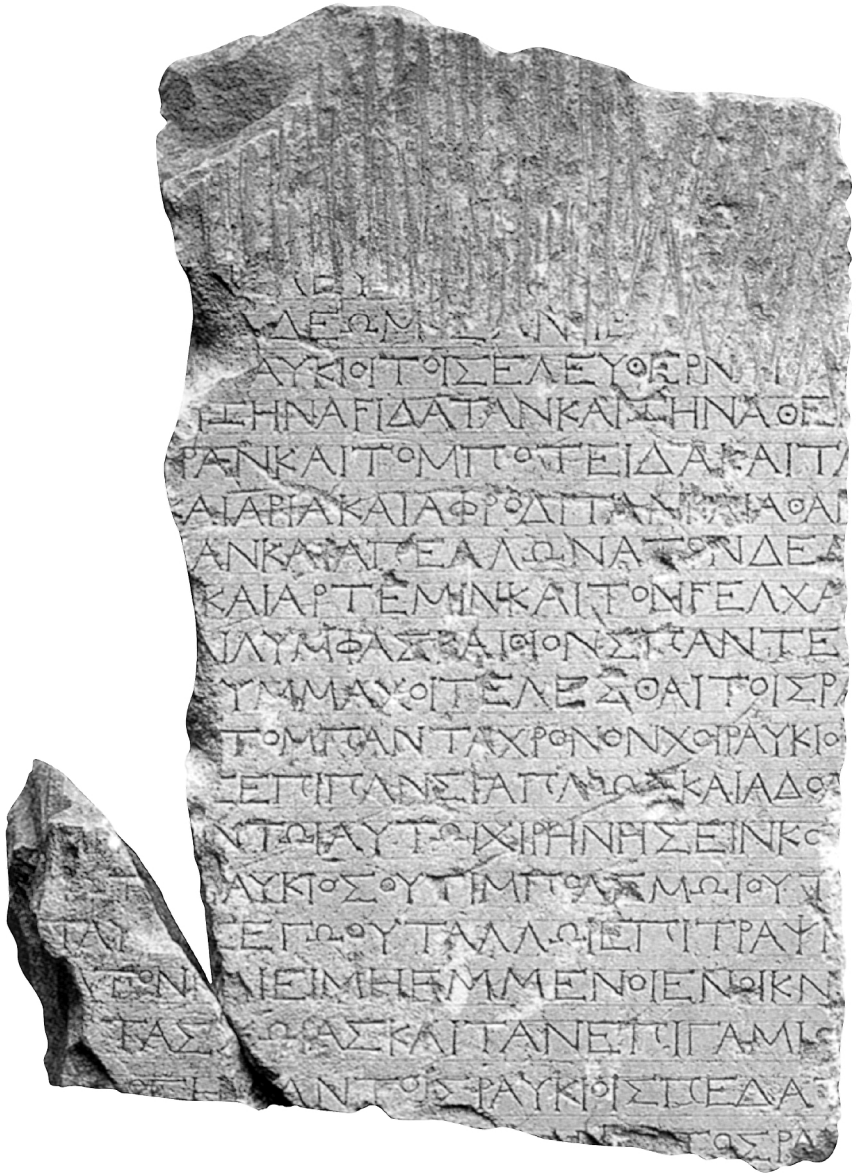 ΔΕΩΜ
ΑΥΚΙΟΙΤΟΙΣΕΛΕΥΘΕΡΝ
ΣΗΝΑϜΙΔΑΤΑΝΚΑΙΣΗΝΑΘΕ
ΡΑΝΚΑΙΤΟΜΠΟΤΕΙΔΑΚΑΙΤΑ
ΚΑΙΑΡΙΑΚΑΙΑΦΡΟΔΙΤΑΝΚΑΙΑΘΑ
ΑΝΚΑΙΑΠΕΛΛΩΝΑΤΟΝΔΕΛ
ΚΑΙΑΡΤΕΜΙΝΚΑΙΤΟΝϜΕΛΧΑ
ΙΛΥΜΦΑΣΚΑΙΘΙΟΝΣΠΑΝΤΕ
ΥΜΜΑΧΟΙΤΕΛΕΣΘΑΙΤΟΙΣΡΑ
ΤΟΜΠΑΝΤΑΧΡΟΝΟΝΧΟΙΡΑΥΚΙΟ
ΣΕΠΙΠΑΝΣΙΑΠΛΟΩΣΚΑΙΑΔΟ
ΝΤΩΙΑΥΤΩΙΧΙΡΗΝΗΣΕΙΝΚΟ
ΑΥΚΙΟΣΟΥΤΙΜΠΟΛΕΜΩΙΟΥΤ
ΤΑΥ ΣΕΓΩΟΥΤΑΛΛΩΙΕΠΙΤΡΑΨ
ΑΤΟΝΚΑΙΕΙΜΗΕΜΜΕΝΟΙΕΝΩΙΚΝ
ΤΑΣΧΩΡΑΣΚΑΙΤΑΝΕΠΙΓΑΜΙ
ΑΝΤΟΣΡΑΥΚΙΟΙΣΠΕΔΑ
ΤΟΣΡΑ